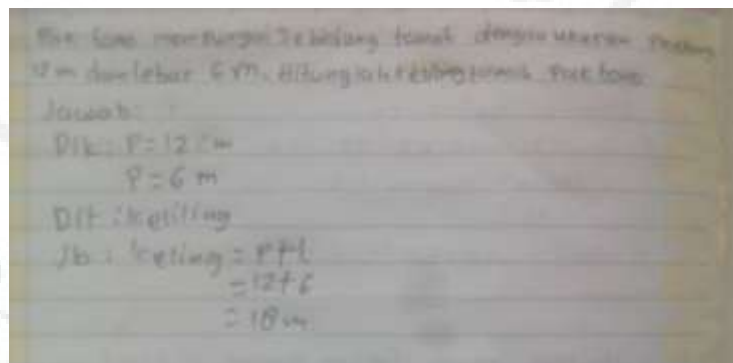 Pak tono mempunyai sebidang tanah dengan ukuran Panjang
12 m dan lebar 6 m. Hitunglah keliling tanah Pak tono
Jawab:
Dik : P = 12 m
P = 6 m
Dit : keliling
Jb : keling = P+l
= 12+6
= 18 m